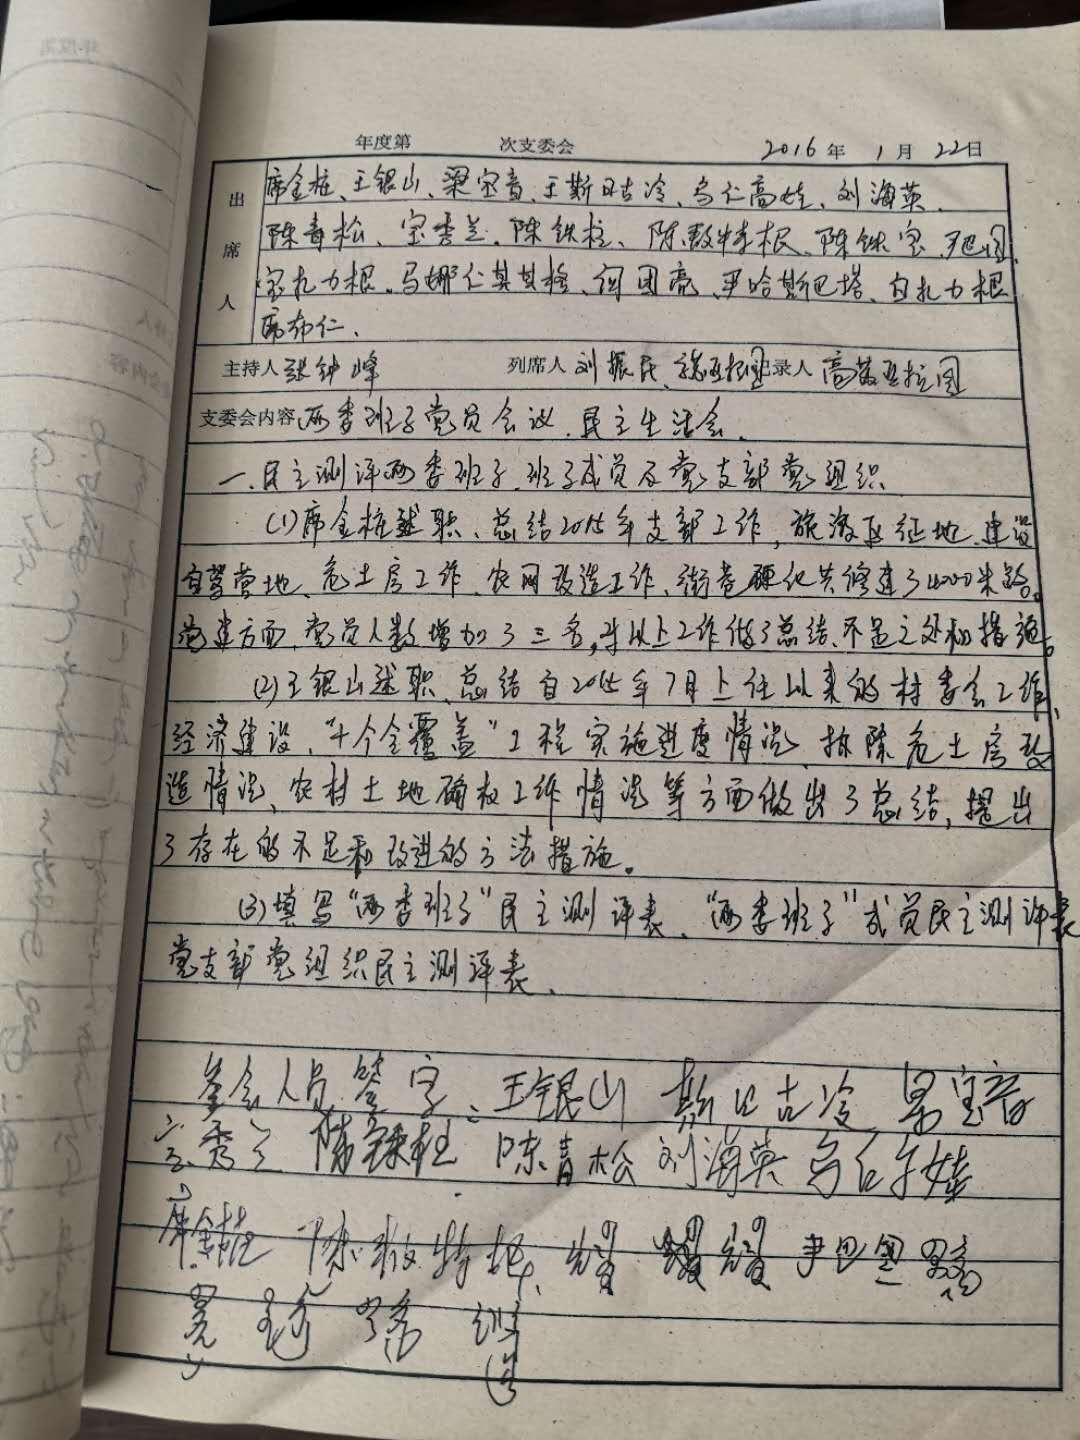 年度第 次支委会 2016年1月22日
出席人
席金柱、王银山、梁宝音、王斯日古冷、乌仁高娃、刘海英、
陈青松、宝秀兰、陈铁柱、陈敖特根、陈铁宝、尹巴图、
宝扎力根、乌娜仁其其格、何团亮、尹哈斯巴塔、白扎力根
席布仁、
主持人 张钟峰 列席人 刘振民、 记录人 高莫日拉图
支委会内容 两委班子党员会议、民主生活会、
一、民主测评两委班子、班子成员及党支部党组织
(1)席金柱述职、总结2015年支部工作,旅游区征地、建设
自驾营地、危土房工作、农网改造工作、街巷硬化共修建了4000米路。
党建方面、党员人数增加了三名,对以上工作做了总结、不足之处和措施。
(2)王银山述职、总结自2015年7月上任以来的村委会工作、
经济建设、“十个全覆盖”工程实施进度情况、拆除危土房改
造情况、农村土地确权工作情况等方面做出了总结,提出
了存在的不足和改进的方法措施。
(3)填写“两委班子”民主测评表、“两委班子”成员民主测评表
党支部党组织民主测评表、
参会人员签字、王银山 斯日古冷 梁宝音
宝秀兰 陈铁柱 陈青松 刘海英 乌仁高娃
席金柱 陈敖特根 尹巴图